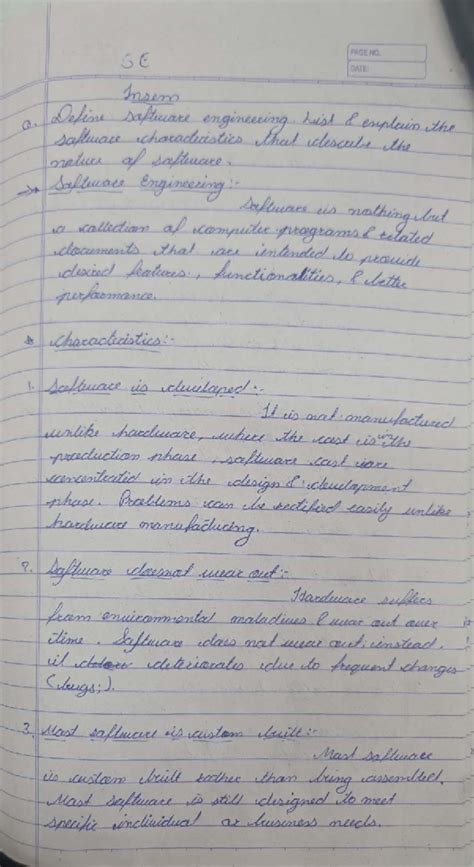 PAGE NO.
DATE:
SE
Insem
Q. Define software engineering List & explain the
software characteristics that describe the
nature of software.
→ Software Engineering:-
Software is nothing but
a collection of computer programs & related
documents that are intended to provide
desired features, functionalities, & better
performance.
Characteristics:-
1. Software is developed:-
It is not manufactured
unlike hardware, where the cost is in the
production phase, software cost are
concentrated in the design & development
phase. Problems can be rectified easily unlike
hardware manufacturing.
2. Software doesnot wear out:-
Hardware suffers
from environmental maladives & wear out over
time. Software does not wear out, instead,
it deteriorates due to frequent changes
(bugs;).
3. Most software is custom built:-
Most software
is custom built rather than being assembled.
Most software is still designed to meet
specific individual or business needs.